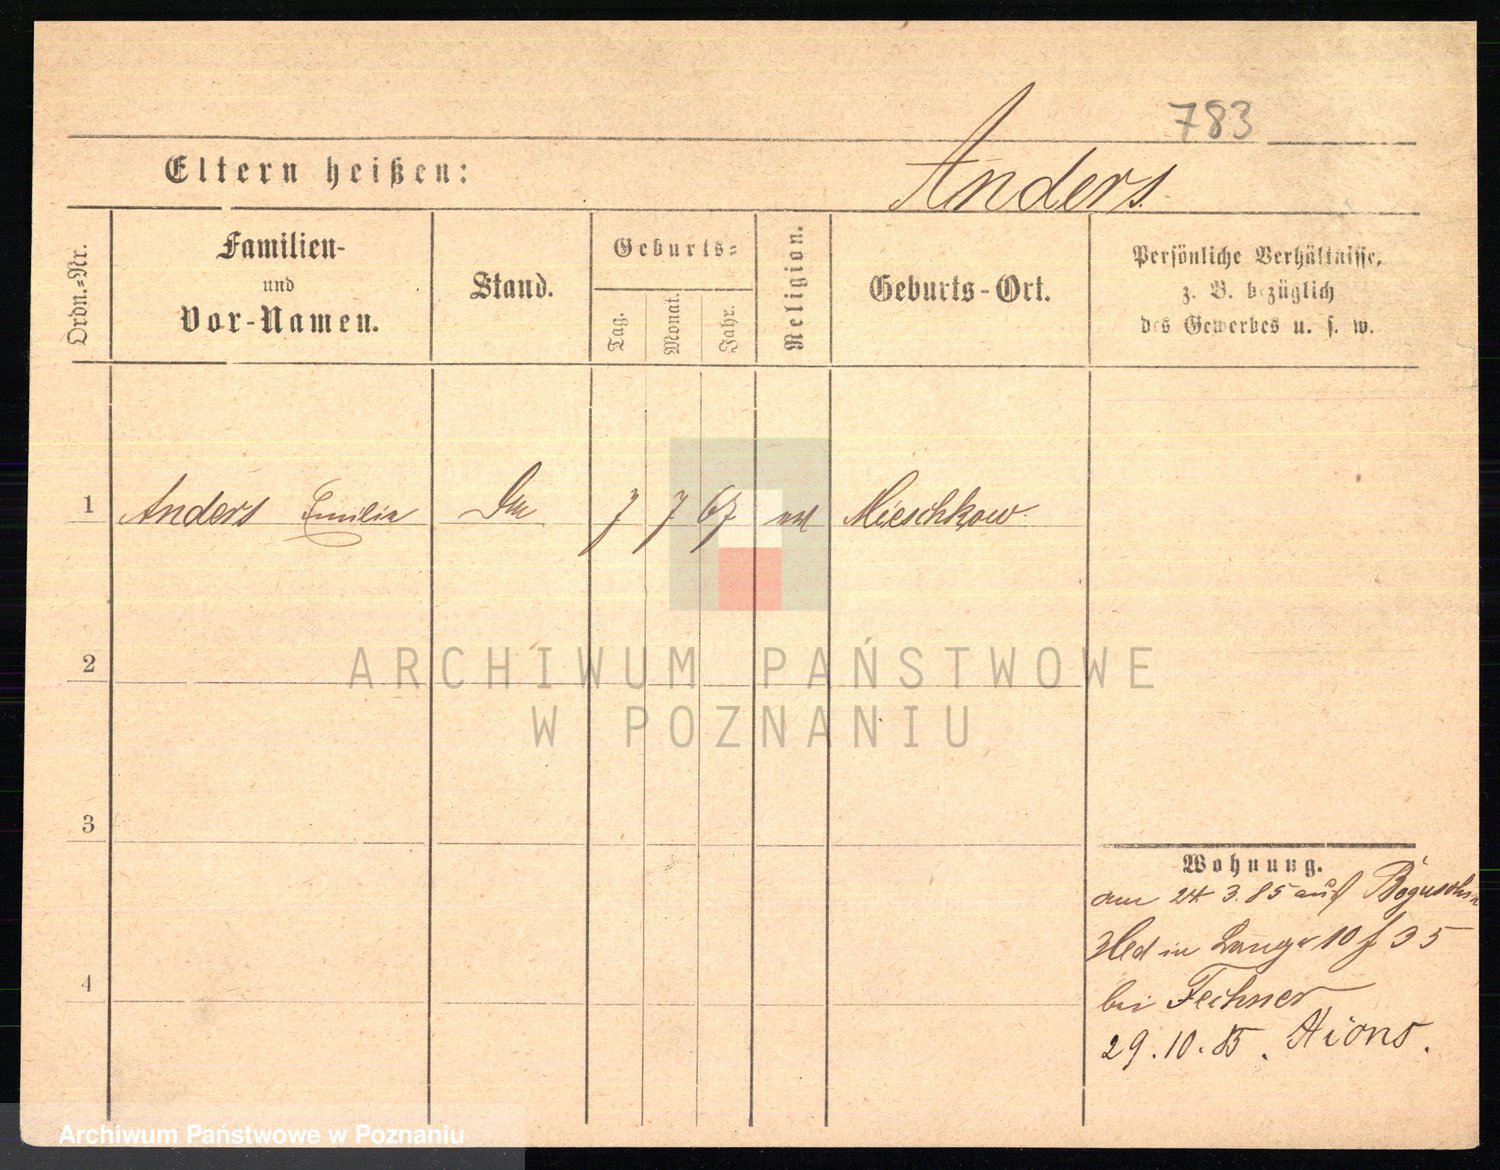 783
Eltern heißen:
Anders.
Ordn.=Nr.
Familien-
und
Vor-Namen.
Stand.
Geburts=
Tag.
Monat.
Jahr.
Religion.
Geburts-Ort.
Persönliche Verhältnisse,
z. B. bezüglich
des Gewerbes u. s. w.
1 Anders Emilia 7 7 67 Mieschkow
2
ARCHIWUM PAŃSTWOWE
W POZNANIU
3
4
Wohnung.
am 24 3. 85 aus
in 10 35
bei Fechner
29. 10. 85.
Archiwum Państwowe w Poznaniu